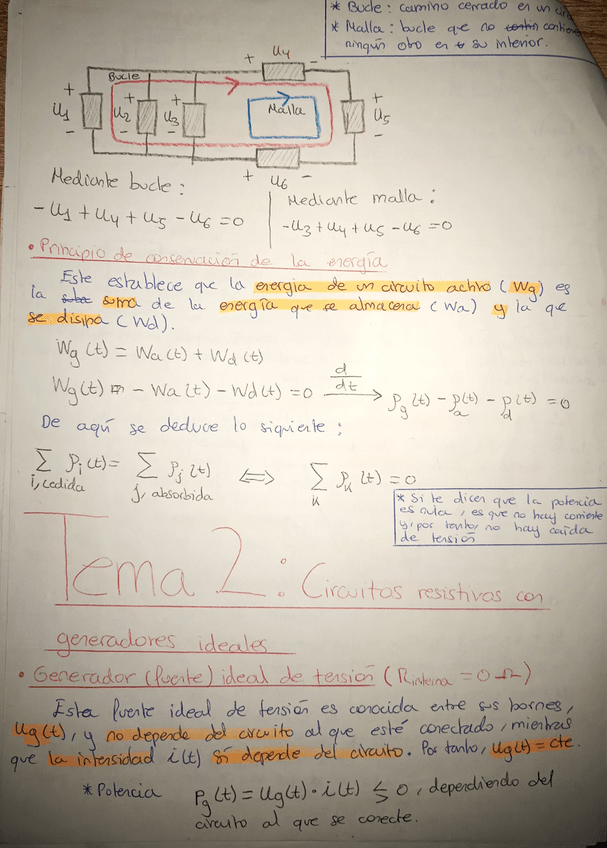 * Bucle: camino cerrado en un
* Malla: bucle que no contiene
ningún otro en su interior.
+ U4 -
Bucle
+ U1 -
+ U2 -
+ U3 -
Malla
+ U5 -
+ U6 -
Mediante bucle:
-U1 + U4 + U5 - U6 = 0
Mediante malla:
-U3 + U4 + U5 - U6 = 0
• Principio de conservación de la energía
Este establece que la energía de un circuito activo (Wg) es
la suma de la energía que se almacena (Wa) y la que
se disipa (Wd).
Wg(t) = Wa(t) + Wd(t)
Wg(t) - Wa(t) - Wd(t) = 0 d/dt → Pg(t) - Pa(t) - Pd(t) = 0
De aquí se deduce lo siguiente:
∑ Pi(t) = ∑ Pj(t) ⟺ ∑ Pk(t) = 0
i, cedida j, absorbida k
* Si te dicen que la potencia
es nula, es que no hay corriente
y, por tanto, no hay caída
de tensión
Tema 2: Circuitos resistivos con
generadores ideales
• Generador (fuente) ideal de tensión (Rinterna = 0 Ω)
Esta fuente ideal de tensión es conocida entre sus bornes,
Ug(t), y no depende del circuito al que esté conectado, mientras
que la intensidad i(t) sí depende del circuito. Por tanto, Ug(t) = cte.
* Potencia Pg(t) = Ug(t) · i(t) ≶ 0, dependiendo del
circuito al que se conecte.